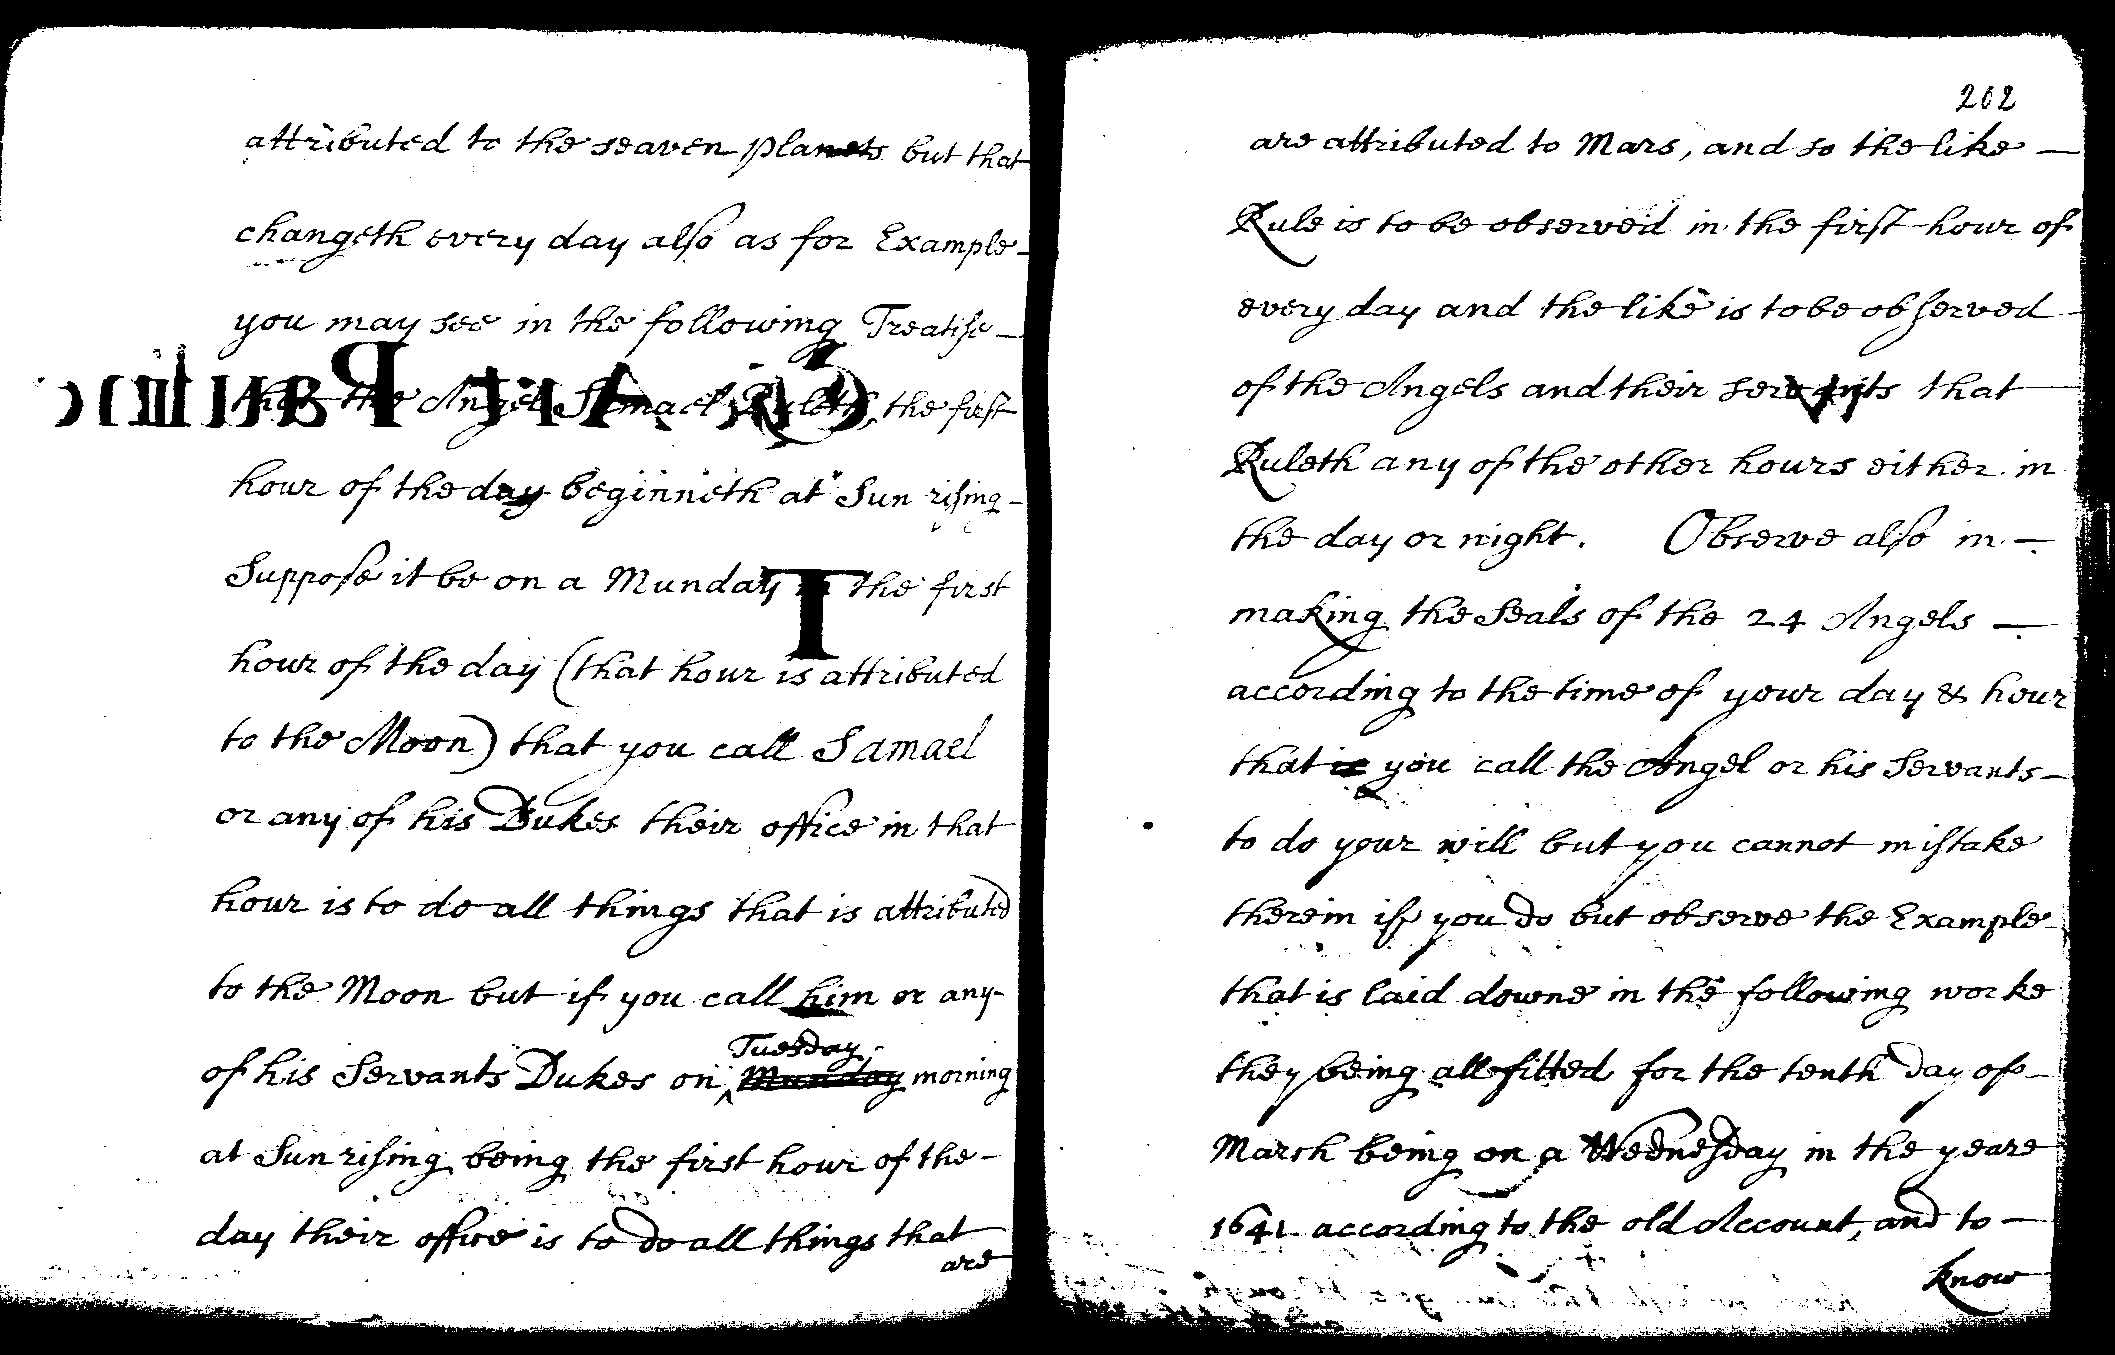 attributed to the seaven planets but that
changeth every day also as for Example
you may see in the following Treatise
that the Angel Samael Ruleth the first
hour of the day beginneth at Sun rising
Suppose it be on a Munday the first
hour of the day (that hour is attributed
to the Moon) that you call Samael
or any of his Dukes their office in that
hour is to do all things that is attributed
to the Moon but if you call him or any
of his Servants Dukes on Tuesday Munday morning
at Sun rising being the first hour of the
day their office is to do all things that
are
202
are attributed to Mars, and so the like
Rule is to be observed in the first hour of
every day and the like is to be observed
of the Angels and their servants that
Ruleth any of the other hours either in
the day or night. Observe also in
making the Seals of the 24 Angels
according to the time of your day & hour
that you call the Angel or his Servants
to do your will but you cannot mistake
therein if you do but observe the Example
that is laid downe in the following worke
they being all fitted for the tenth day of
March being on a Wednesday in the yeare
1641 according to the old Account, and to
know